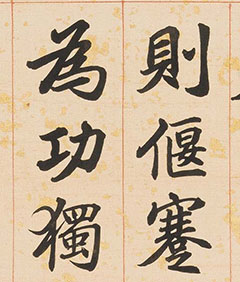 則偃蹇
為功獨